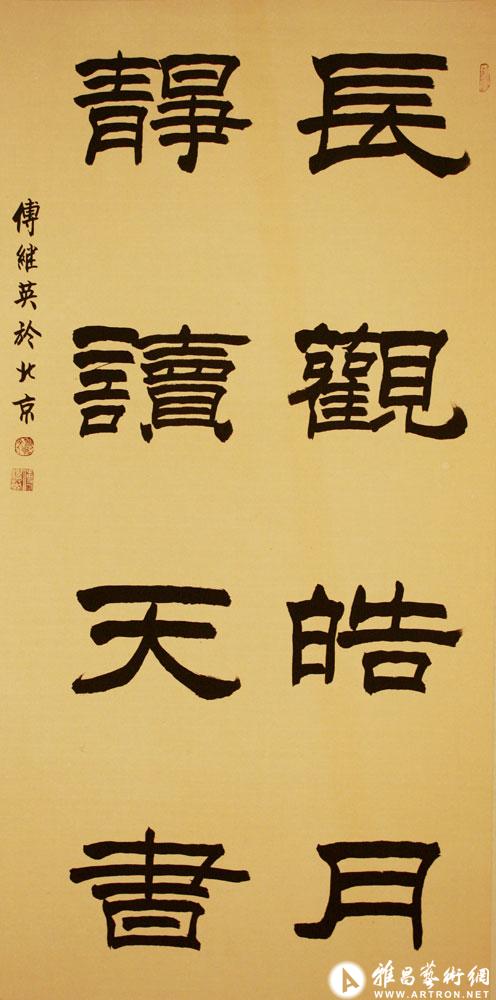 長觀皓月
靜讀天書
傅繼英於北京
雅昌藝術網
WWW.ARTRON.NET